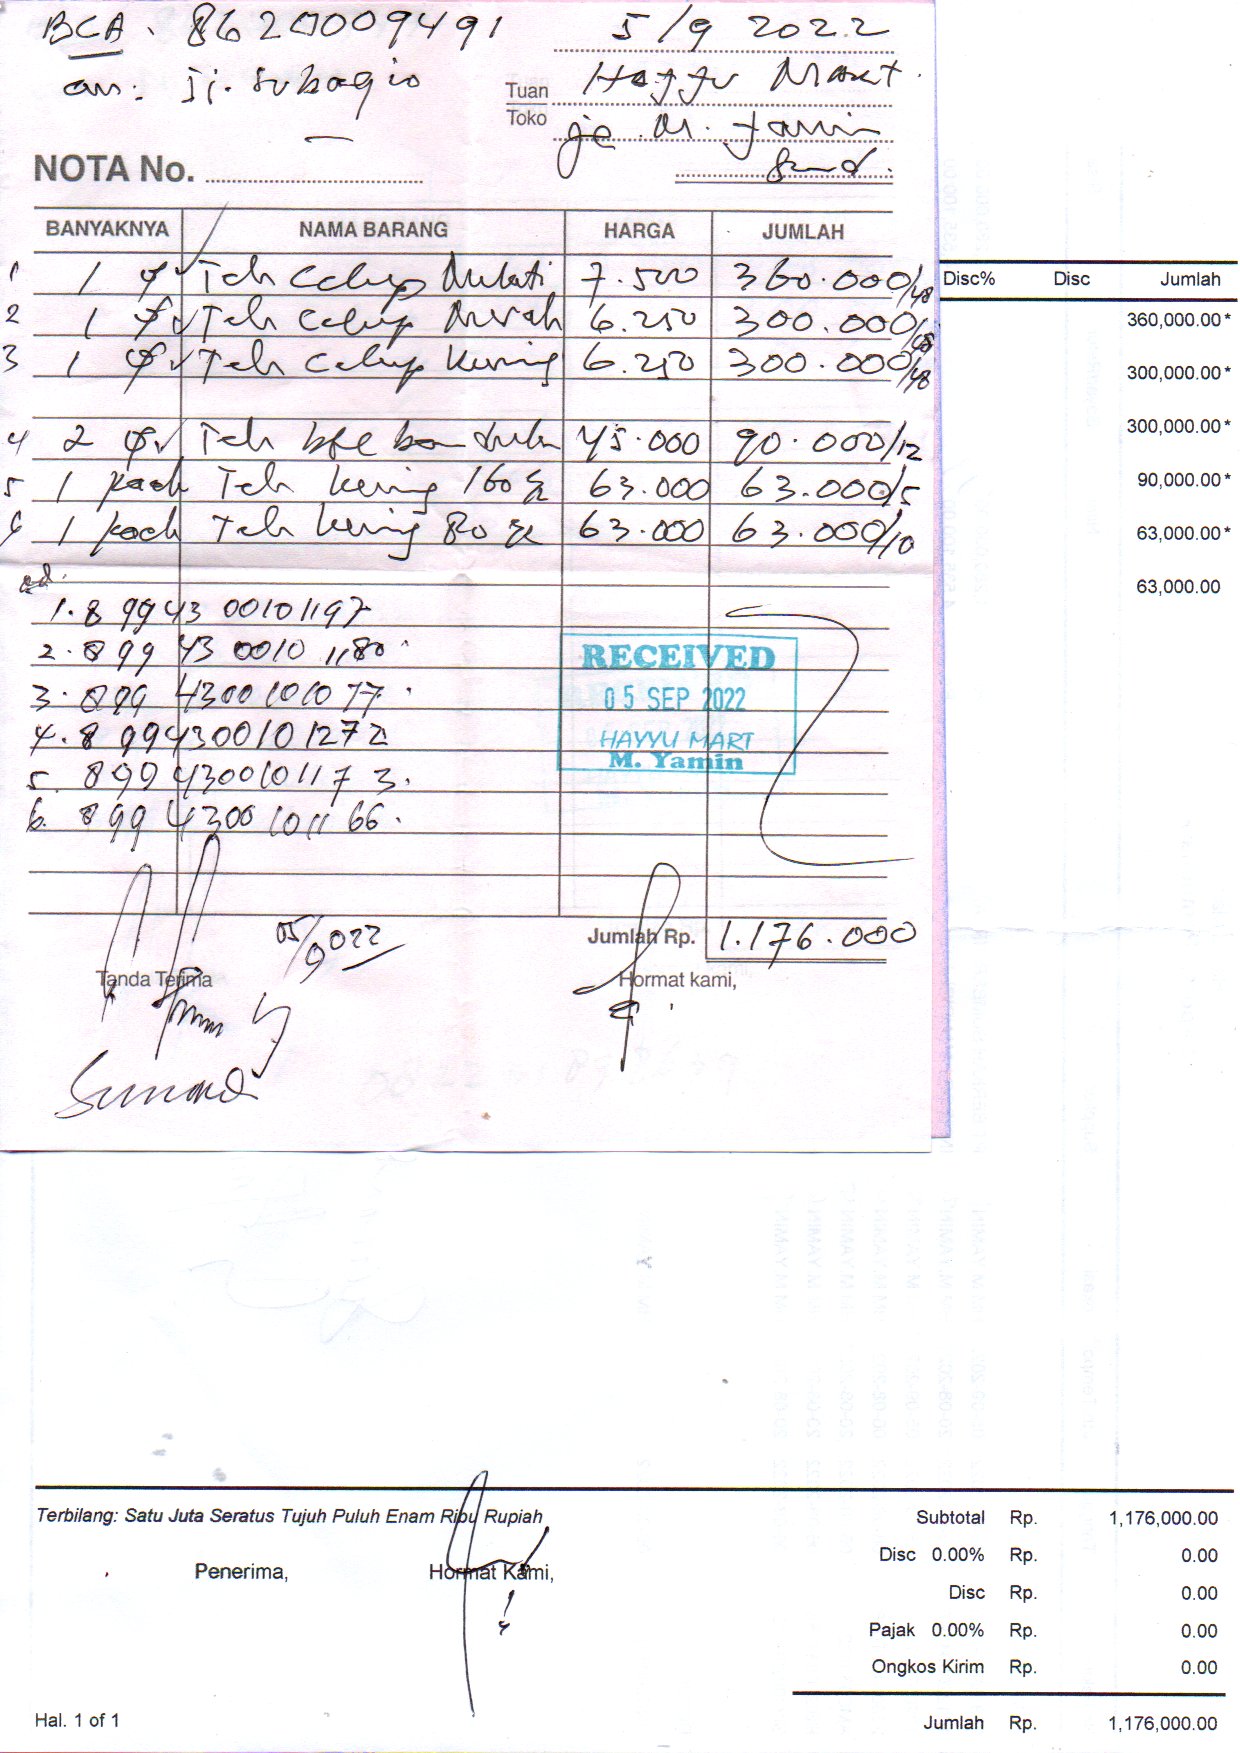 BCA. 8620009491
5/9 2022
an: Sj. Subagio
Tuan Hayyu Mart.
Toko M. Yamin
NOTA No.
BANYAKNYA NAMA BARANG HARGA JUMLAH
1 1 Teh Celup Melati 7.500 360.000/48
2 1 Teh Celup Merah 6.250 300.000/48
3 1 Teh Celup Kuning 6.250 300.000/48
4 2 Teh 45.000 90.000/12
5 1 pack Teh kuning 160 63.000 63.000/5
6 1 pack Teh kuning 80 63.000 63.000/10
1. 8 99 43 00101197
2. 899 43 0010 1180
3. 899 4300101077.
4. 8 99430010 1272
5. 899 430010117 3.
6. 899 4300 1011 66.
RECEIVED
05 SEP 2022
HAYYU MART
M. Yamin
Jumlah Rp. 1.176.000
05/9 022
Tanda Terima Hormat kami,
Sunardi
Disc% Disc Jumlah
360,000.00*
300,000.00*
300,000.00*
90,000.00*
63,000.00*
63,000.00
Terbilang: Satu Juta Seratus Tujuh Puluh Enam Ribu Rupiah
Penerima, Hormat Kami,
Subtotal Rp. 1,176,000.00
Disc 0.00% Rp. 0.00
Disc Rp. 0.00
Pajak 0.00% Rp. 0.00
Ongkos Kirim Rp. 0.00
Hal. 1 of 1
Jumlah Rp. 1,176,000.00